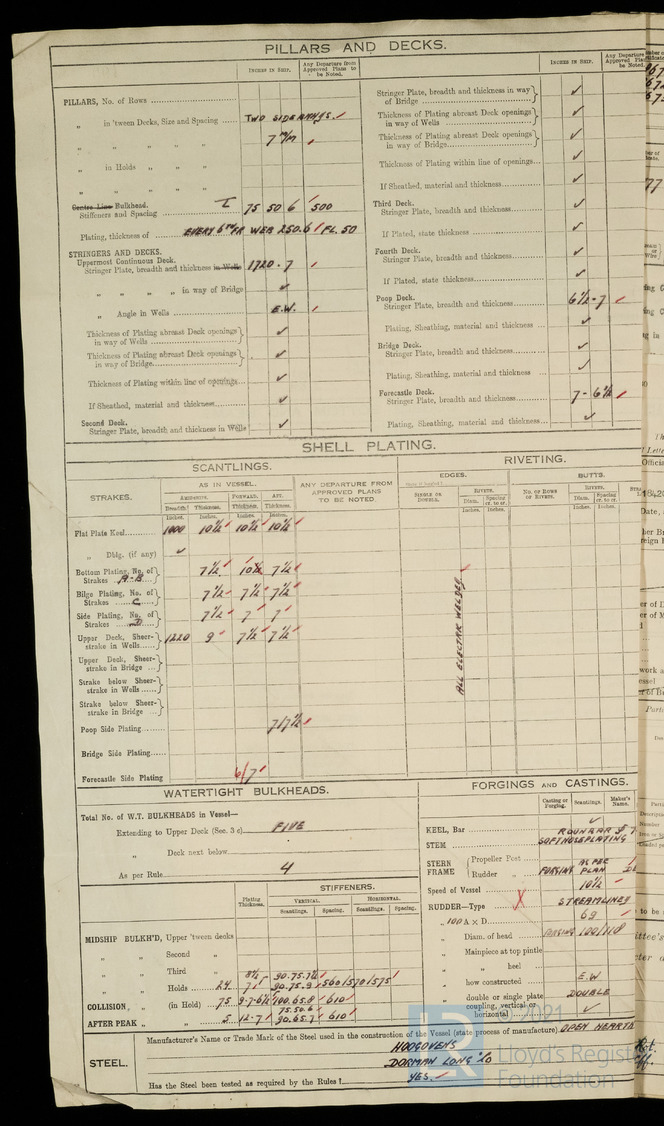 PILLARS AND DECKS.
INCHES IN SHIP.
Any Departure from Approved Plans to be Noted.
PILLARS, No. of Rows
„ in 'tween Decks, Size and Spacing TWO SIDE
7 m/m
„ „ „ „
„ in Holds „ „
„ „ „ „
Centre Line Bulkhead.
Stiffeners and Spacing I 75 50 6 500
Plating, thickness of EVERY 6TH FR WEB 250.6 FL. 50
STRINGERS AND DECKS.
Uppermost Continuous Deck.
Stringer Plate, breadth and thickness in Wells 1720 - 7
„ „ „ „ in way of Bridge ✓
„ Angle in Wells E.W.
Thickness of Plating abreast Deck openings in way of Wells ✓
Thickness of Plating abreast Deck openings in way of Bridge ✓
Thickness of Plating within line of openings ✓
If Sheathed, material and thickness ✓
Second Deck.
Stringer Plate, breadth and thickness in Wells ✓
INCHES IN SHIP.
Any Departure
Approved
be Noted.
Stringer Plate, breadth and thickness in way of Bridge ✓
Thickness of Plating abreast Deck openings in way of Wells ✓
Thickness of Plating abreast Deck openings in way of Bridge ✓
Thickness of Plating within line of openings ✓
If Sheathed, material and thickness ✓
Third Deck.
Stringer Plate, breadth and thickness ✓
If Plated, state thickness ✓
Fourth Deck.
Stringer Plate, breadth and thickness ✓
If Plated, state thickness ✓
Poop Deck.
Stringer Plate, breadth and thickness 6½ - 7
Plating, Sheathing, material and thickness ✓
Bridge Deck.
Stringer Plate, breadth and thickness ✓
Plating, Sheathing, material and thickness ✓
Forecastle Deck.
Stringer Plate, breadth and thickness 7 - 6½
Plating, Sheathing, material and thickness ✓
SHELL PLATING.
SCANTLINGS.
RIVETING.
STRAKES.
AS IN VESSEL.
ANY DEPARTURE FROM APPROVED PLANS TO BE NOTED
EDGES.
BUTTS.
AMIDSHIPS. FORWARD. AFT.
Breadth. Thickness. Thickness. Thickness.
Inches. Inches. Inches. Inches.
SINGLE OR DOUBLE.
RIVETS.
Diam. Spacing cr. to cr.
Inches. Inches.
No. OF ROWS OF RIVETS.
RIVETS.
Diam. Spacing cr. to cr.
Inches. Inches.
Flat Plate Keel 1000 10½ 10½ 10½
„ Dblg. (if any) ✓
Bottom Plating, No. of Strakes A-B 7½ 10½ 7½
Bilge Plating, No. of Strakes C 7½ 7½ 7½
Side Plating, No. of Strakes D 7½ 7 7
Upper Deck, Sheer-strake in Wells 1220 9 7½ 7½
Upper Deck, Sheer-strake in Bridge
Strake below Sheer-strake in Wells
Strake below Sheer-strake in Bridge
Poop Side Plating 7/7½
Bridge Side Plating
Forecastle Side Plating 6/7
ALL ELECTRIC WELDED
WATERTIGHT BULKHEADS.
Total No. of W.T. BULKHEADS in Vessel—
Extending to Upper Deck (Sec. 3 c) FIVE
„ Deck next below
As per Rule 4
Plating Thickness.
STIFFENERS.
VERTICAL. HORIZONTAL.
Scantlings. Spacing. Scantlings. Spacing.
MIDSHIP BULKH'D, Upper 'tween decks
„ „ Second „
„ „ Third „
„ „ Holds
COLLISION „ (in Hold) 75 9-7-6½ 100.65.8 610
AFTER PEAK „ „ 5 12-7 75.50.6 90.65.7 610
FORGINGS AND CASTINGS.
Casting or Forging. Scantlings. Maker's Name.
KEEL, Bar ✓
STEM ROUNBAR
SOFTNOSEPLATING
STERN FRAME Propeller Post AS PER
Rudder „ FORGING PLAN
Speed of Vessel 10½
RUDDER—Type STREAMLINED
„ 100 A × D 69
„ Diam. of head FORGING 100/110
„ Mainpiece at top pintle
„ „ heel
„ how constructed E.W
„ double or single plate DOUBLE
„ coupling, vertical or horizontal ✓
STEEL.
Manufacturer's Name or Trade Mark of the Steel used in the construction of the Vessel (state process of manufacture) OPEN HEARTH
HOOGOVENS
DORMAN LONG
Has the Steel been tested as required by the Rules? YES.
© 2021
Lloyd's Register
Foundation